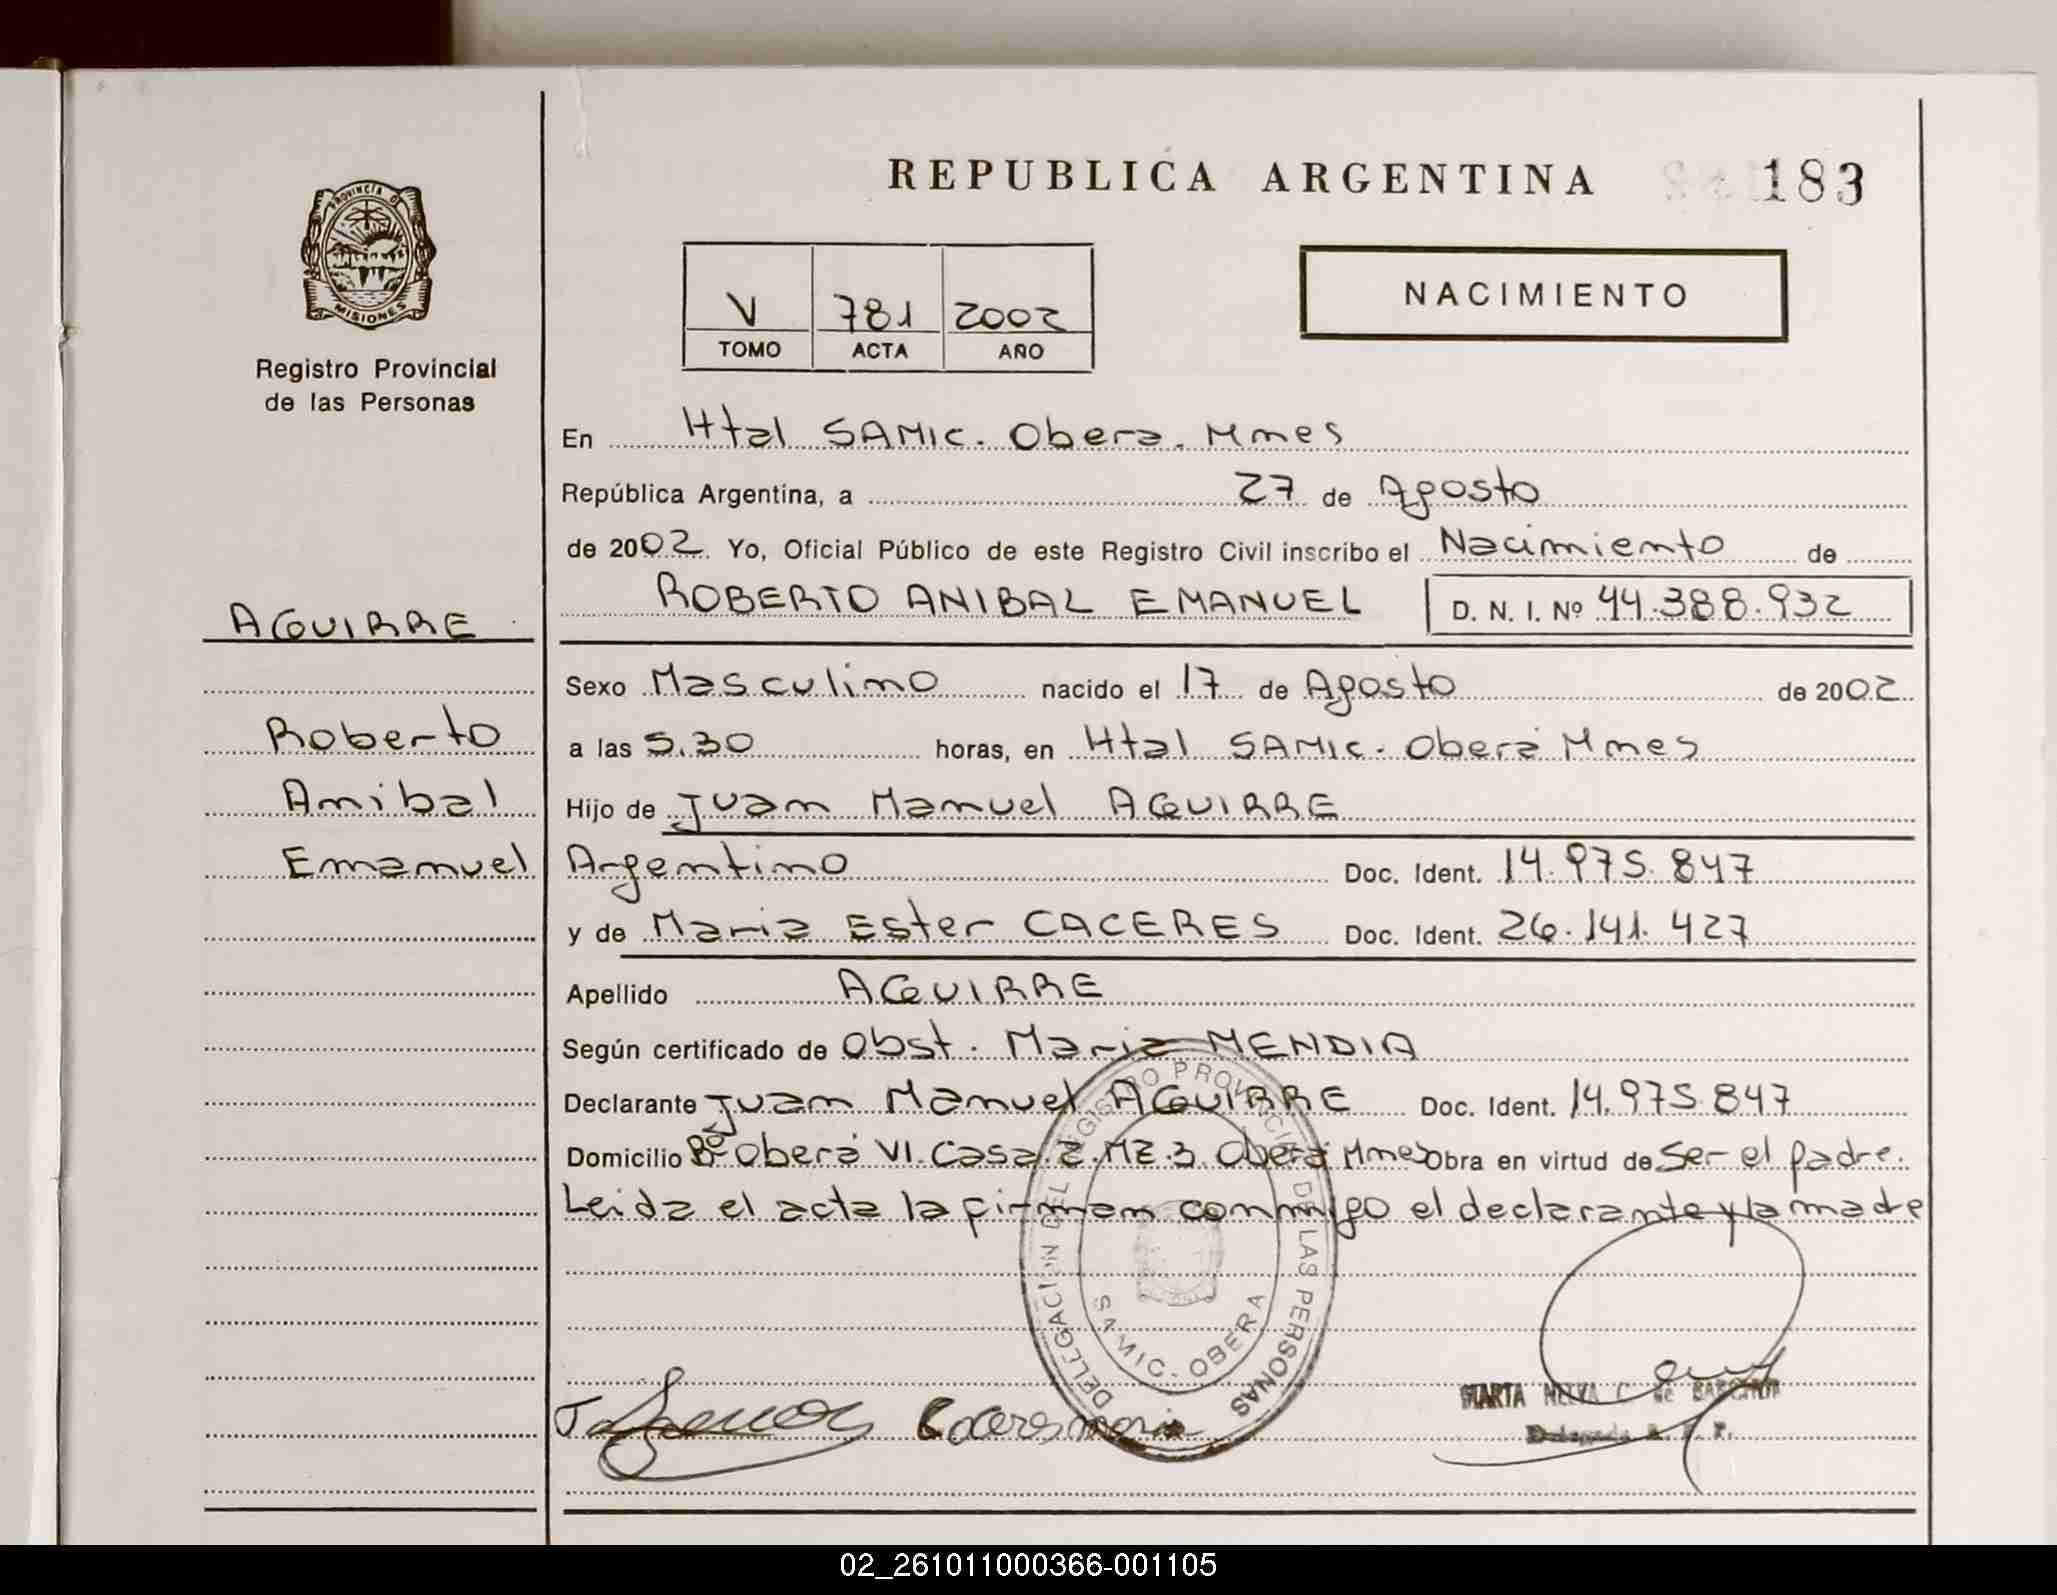 REPUBLICA ARGENTINA
183
PROVINCIA DE
MISIONES
Registro Provincial
de las Personas
V 781 2002
TOMO ACTA AÑO
NACIMIENTO
En Htal SAMIC. Obera. Mnes
República Argentina, a 27 de Agosto
de 2002. Yo, Oficial Público de este Registro Civil inscribo el Nacimiento de
ROBERTO ANIBAL EMANUEL D. N. I. Nº 44.388.932
AGUIRRE
Sexo Masculino nacido el 17 de Agosto de 2002
Roberto
a las 5.30 horas, en Htal SAMIC. Oberá Mnes
Anibal
Hijo de Juan Manuel AGUIRRE
Emanuel
Argentino Doc. Ident. 14.975.847
y de Maria Ester CACERES Doc. Ident. 26.141.427
Apellido AGUIRRE
Según certificado de Obst. Maria MENDIA
Declarante Juan Manuel AGUIRRE Doc. Ident. 14.975.847
Domicilio Bº Oberá VI. Casa 2. MZ.3. Oberá Mnes Obra en virtud de Ser el padre.
Leida el acta la firman conmigo el declarante y la madre
DELEGACION DEL REGISTRO PROVINCIAL DE LAS PERSONAS
SAMIC. - OBERA
Caceres maria
MARTA C. de
Delegada
02_261011000366-001105